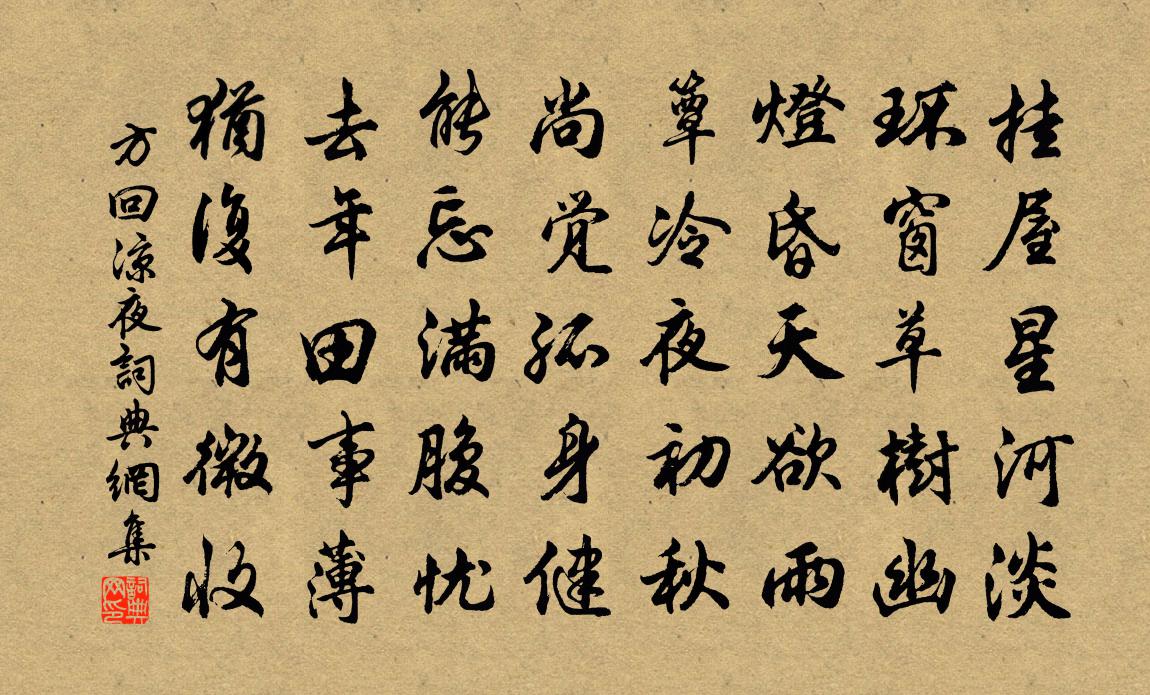 挂屋星河淡
环窗草樹幽
燈昏天欲雨
簟冷夜初秋
尚觉孤身健
能忘満腹忧
去年田事薄
猶復有微收
方回涼夜詞典網集
詞典网印